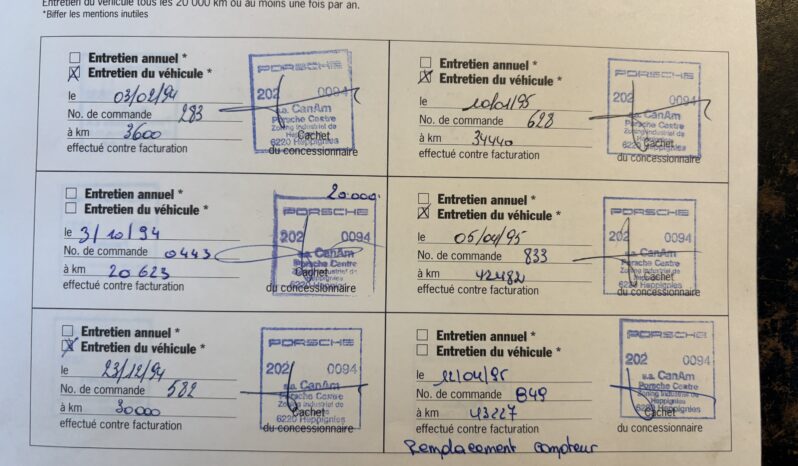 Entretien du véhicule tous les 20 000 km ou au moins une fois par an.
*Biffer les mentions inutiles
Entretien annuel *
Entretien du véhicule *
le 03/02/94
No. de commande 283
à km 3600
effectué contre facturation
PORSCHE
202 0094
s.a. CanAm
Porsche Centre
Zoning Industriel de
Heppignies
6220 Heppignies
Cachet
du concessionnaire
Entretien annuel *
Entretien du véhicule *
le 10/01/95
No. de commande 628
à km 34440
effectué contre facturation
PORSCHE
202 0094
s.a. CanAm
Porsche Centre
Zoning Industriel de
Heppignies
6220 Heppignies
Cachet
du concessionnaire
Entretien annuel *
Entretien du véhicule *
20.000.
le 3/10/94
No. de commande 0443
à km 20623
effectué contre facturation
PORSCHE
202 0094
s.a. CanAm
Porsche Centre
Zoning Industriel de
Cachet
6220 Heppignies
du concessionnaire
Entretien annuel *
Entretien du véhicule *
le 05/04/95
No. de commande 833
à km 42482
effectué contre facturation
PORSCHE
202 0094
s.a. CanAm
Porsche Centre
Zoning Industriel de
Cachet
6220 Heppignies
du concessionnaire
Entretien annuel *
Entretien du véhicule *
le 23/12/94
No. de commande 582
à km 30000
effectué contre facturation
PORSCHE
202 0094
s.a. CanAm
Porsche Centre
Zoning Industriel de
Cachet
6220 Heppignies
du concessionnaire
Entretien annuel *
Entretien du véhicule *
le 12/04/95
No. de commande 849
à km 43227
effectué contre facturation
PORSCHE
202 0094
s.a. CanAm
Porsche Centre
Zoning Industriel de
Heppignies
6220 Heppignies
Cachet
du concessionnaire
Remplacement compteur